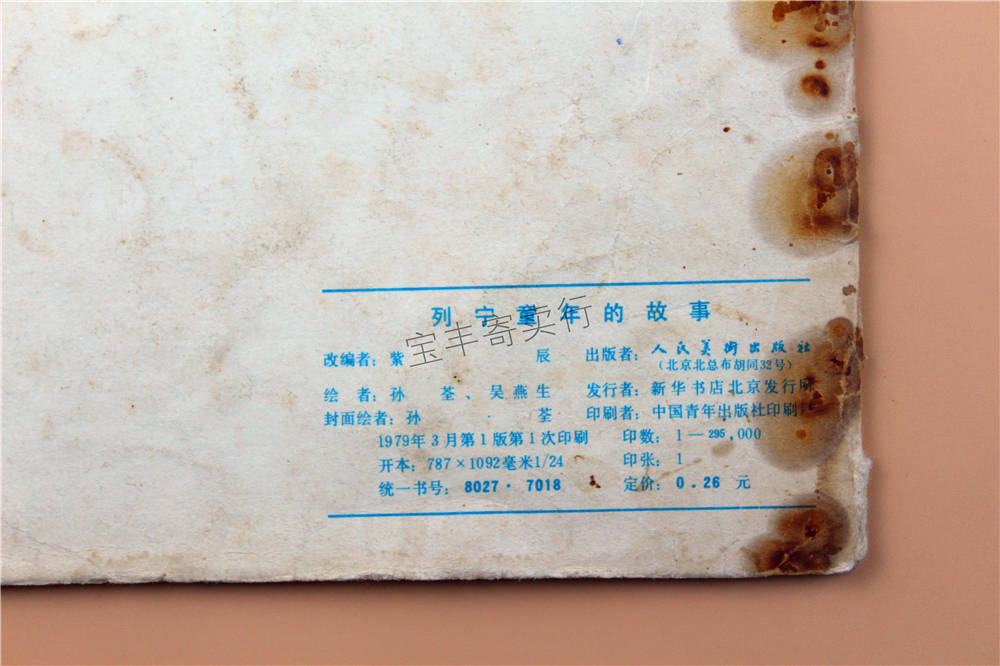 列宁童年的故事
宝丰寄卖行
改编者：紫 辰 出版者：人民美術出版社
（北京北总布胡同32号）
绘者：孙 荃、吴燕生 发行者：新华书店北京发行所
封面绘者：孙 荃 印刷者：中国青年出版社印刷厂
1979年3月第1版第1次印刷 印数：1—295,000
开本：787×1092毫米1/24 印张：1
统一书号：8027·7018 定价：0.26 元